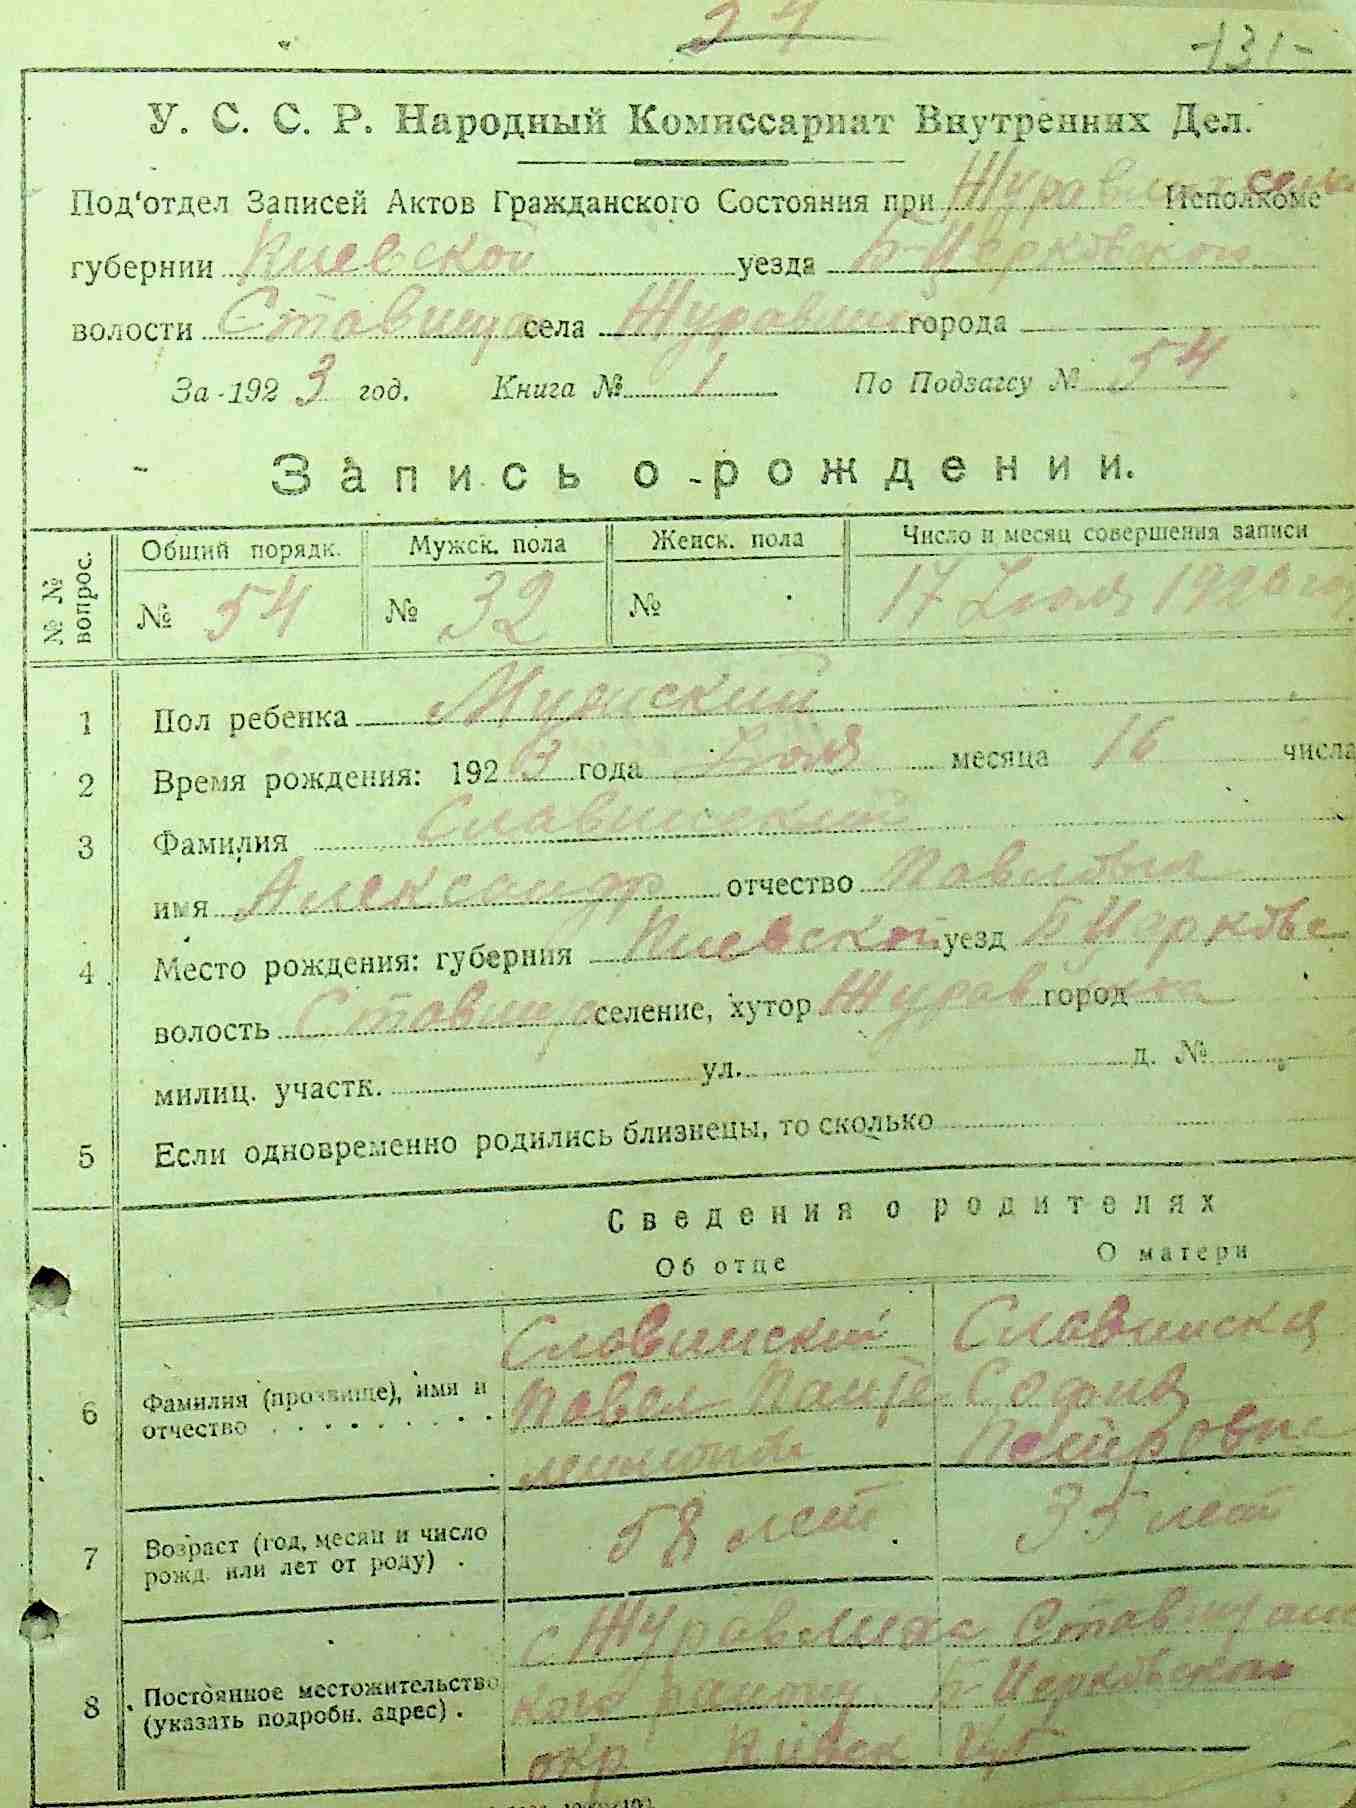 24
-131-
У. С. С. Р. Народный Комиссариат Внутренних Дел.
Под'отдел Записей Актов Гражданского Состояния при Исполкоме
губернии Киевской уезда Б-Церковского
волости Ставища села города
За 1923 год. Книга № 1 По Подзагсу № 54
Запись о рождении.
№ № вопрос. Общий порядк. Мужск. пола Женск. пола Число и месяц совершения записи
№ 54 № 32 № 17 Июля
1 Пол ребенка Мужский
2 Время рождения: 1923 года Июля месяца 16 числа
3 Фамилия Славинский
имя Александр отчество Павлович
4 Место рождения: губерния Киевской уезд Б Церковс
волость Ставища селение, хутор город
милиц. участк. ул. д. №
5 Если одновременно родились близнецы, то сколько
Сведения о родителях
Об отце О матери
Словинский Славинская
6 Фамилия (прозвище), имя и Павел Панте- София
отчество Петровна
7 Возраст (год, месяц и число 58 лет 35 лет
рожд. или лет от роду) .
с Журавлиха Ставищанс
8 Постоянное местожительство кого району Б-Церковского
(указать подробн. адрес) .
окр Киевск Губ